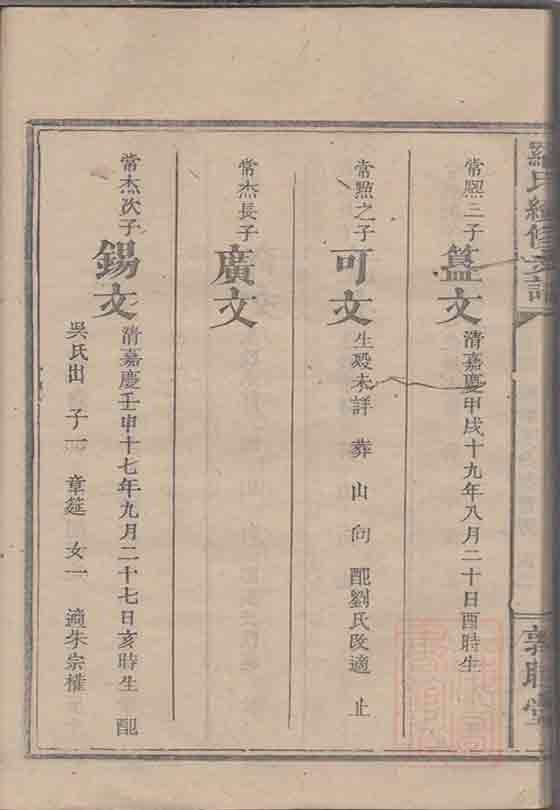 羅氏續修支譜
敦睦堂
常熙三子
簋文
清嘉慶甲戌十九年八月二十日酉時生
常熙之子
可文
生歿未詳 葬 山 向 配劉氏改適 止
常杰長子
廣文
常杰次子
錫文
清嘉慶壬申十七年九月二十七日亥時生 配
吳氏出 子一 章筵 女一 適朱宗權